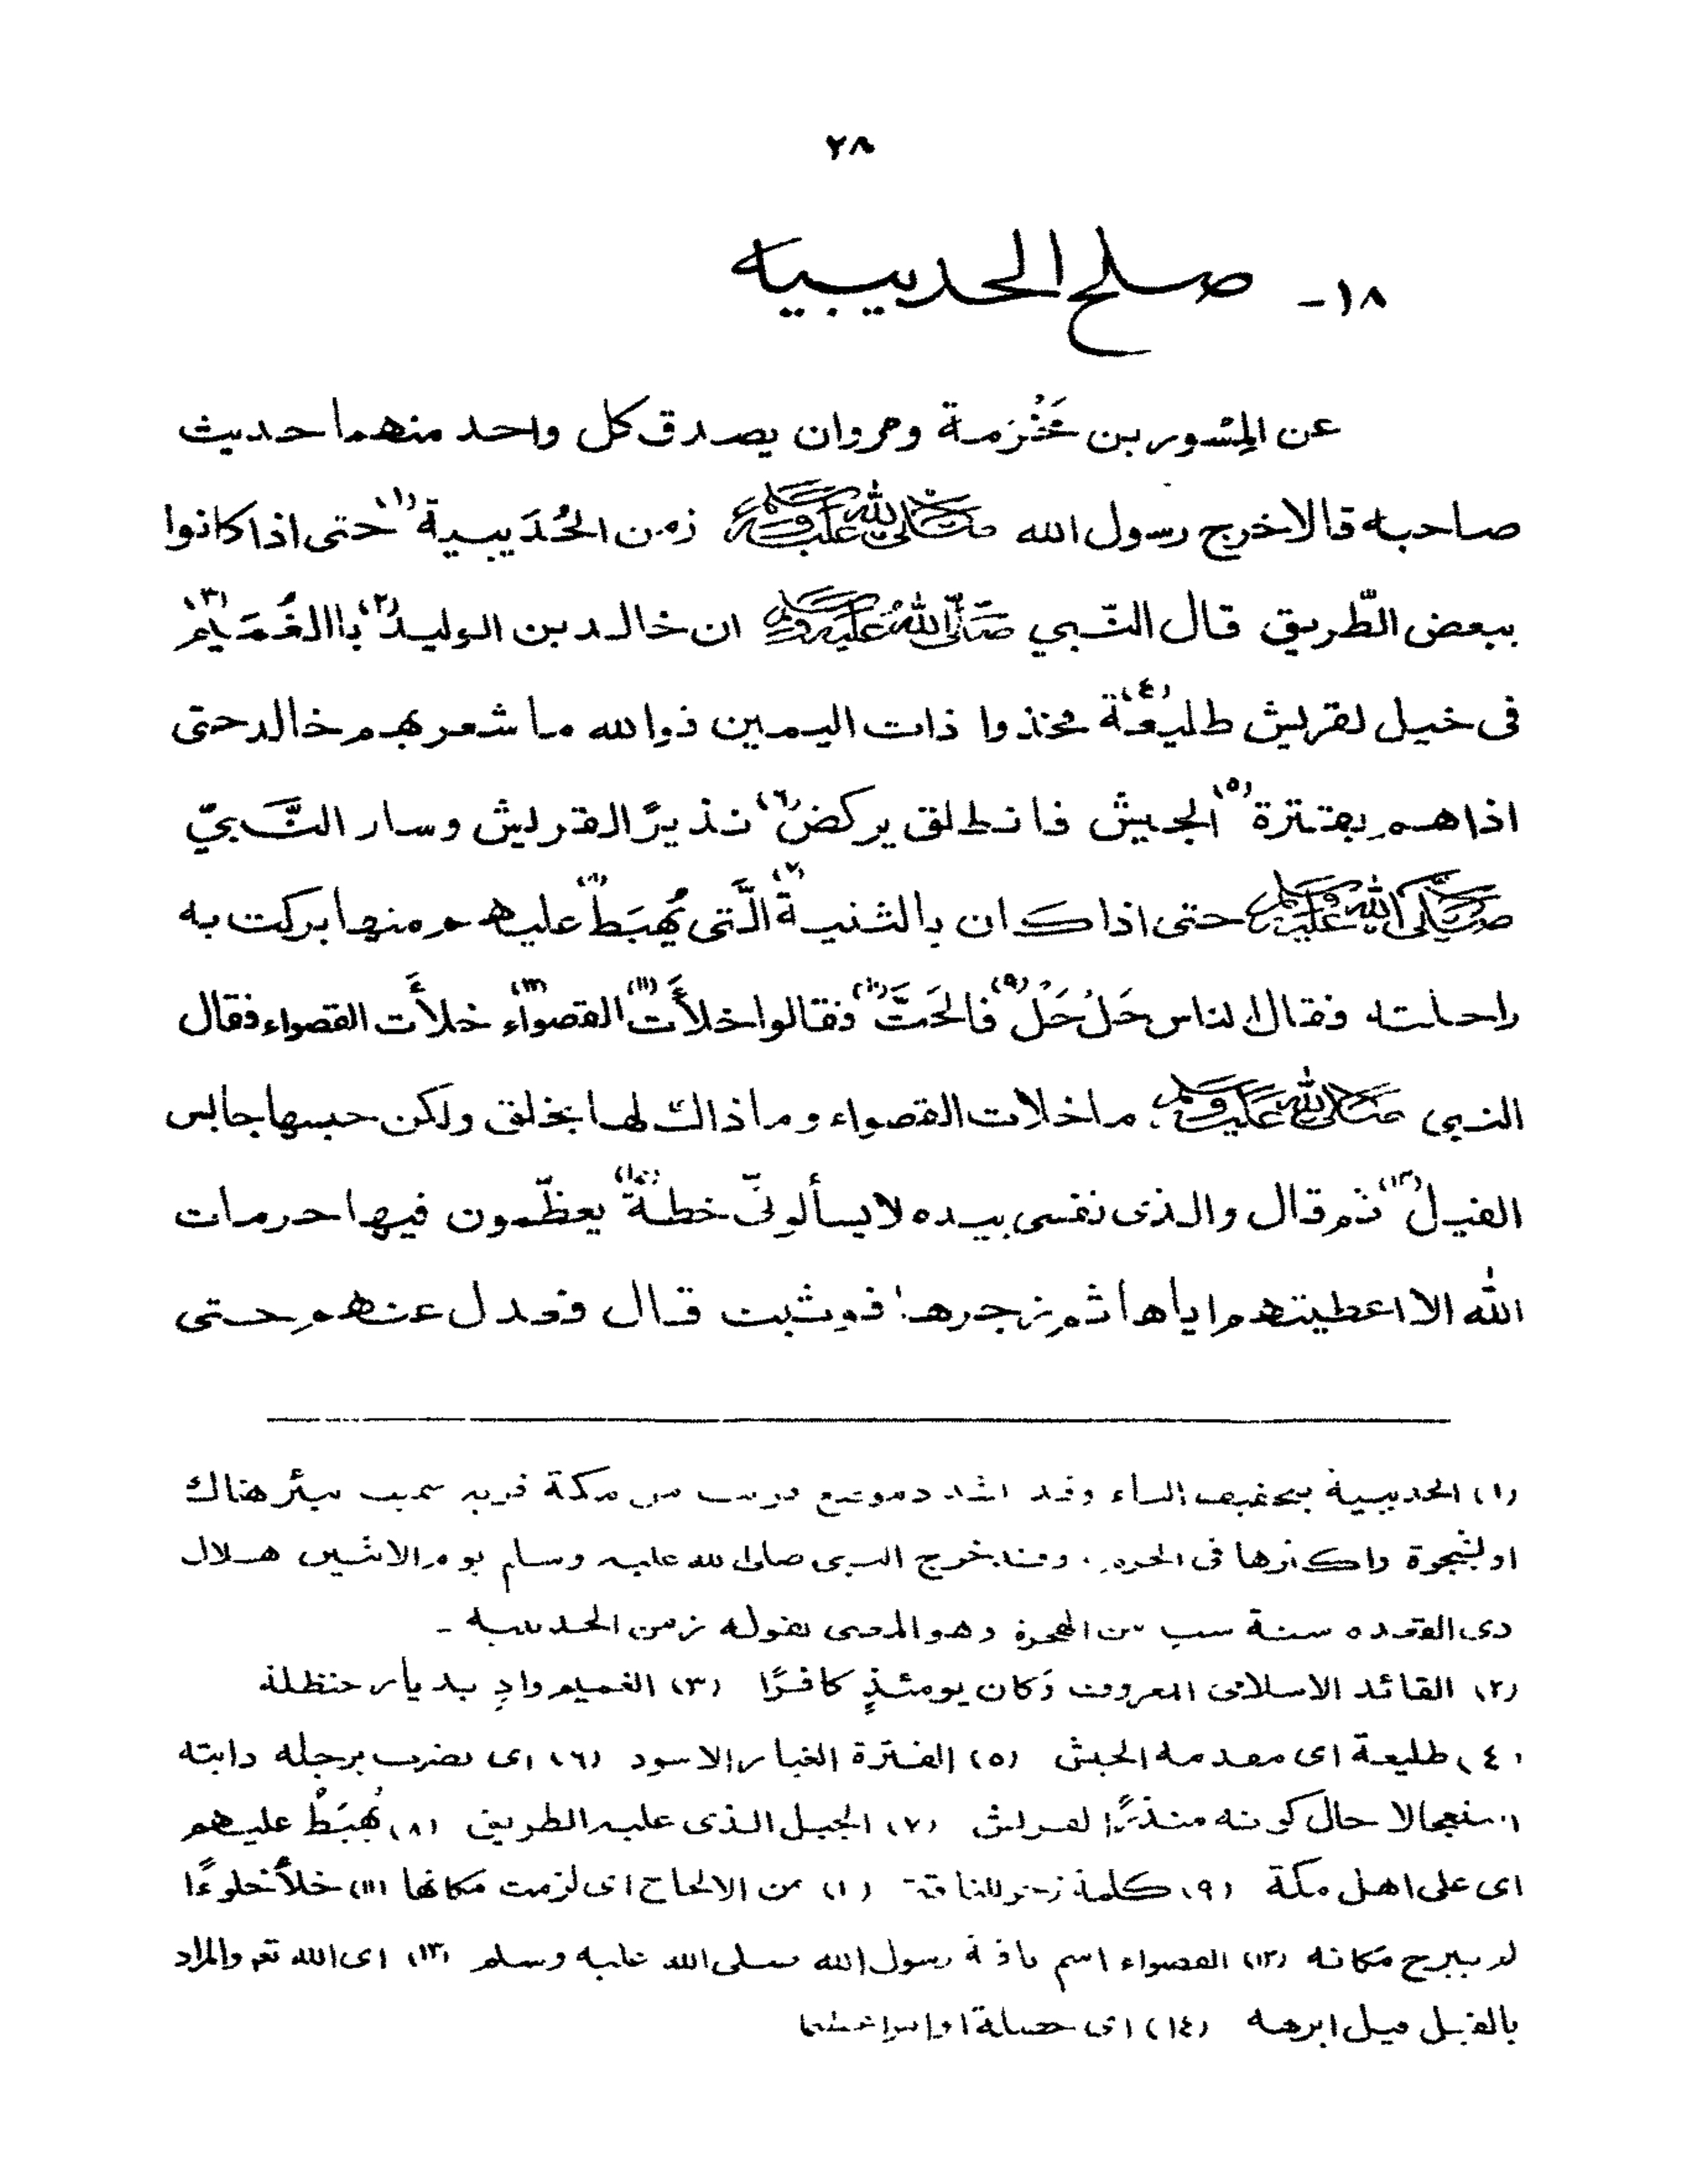 ٢٨
١٨- صلح الحديبيه
عن المِسْور بن مَخْرَمة ومروان يصدق كل واحد منهما حديث
صاحبه قالا خرج رسول الله ﷺ زمن الحُدَيبية (١) حتى اذا كانوا
ببعض الطّريق قال النّبي ﷺ ان خالد بن الوليد (٢) باالغُمَيم (٣)
فى خيل لقريش طليعة (٤) فخذوا ذات اليمين فوالله ما شعر بهم خالد حتى
اذا هم بقترة (٥) الجيش فانطلق يركض (٦) نذيرًا لقريش وسار النَّبيّ
ﷺ حتى اذا كان بالثنية (٧) الَّتى يُهبَطُ (٨) عليهم منها بركت به
راحلته فقال الناس حَلْ حَلْ (٩) فالحَّت (١٠) فقالوا خلأَت (١١) القصواء (١٢) خلأَت القصواء فقال
النبي ﷺ ما خلات القصواء وما ذاك لها بخلق ولكن حبسها حابس
الفيل (١٣) ثم قال والذى نفسى بيده لا يسألونّى خطة (١٤) يعظّمون فيها حرمات
الله الا اعطيتهم اياها ثم زجرها فوثبت قال فعدل عنهم حتى
(١) الحديبية بتخفيف الياء وقد تشدد موضع قريب من مكة قريه سميت ببئر هناك
او لشجرة واكثرها فى الحرم . وقد خرج النبى صلى الله عليه وسلم يوم الاثنين هلال
ذى القعده سنة ست من الهجرة وهو المعنى بقوله زمن الحديبيه -
(٢) القائد الاسلامى المعروف وَكان يومئذٍ كافرًا (٣) الغميم وادٍ بديار حنظلة
(٤) طليعة اى مقدمه الجيش (٥) القترة الغبار الاسود (٦) اى يضرب برجله دابته
استعجالا حال كونه منذرًا لقريش (٧) الجبل الذى عليه الطريق (٨) يُهبَطُ عليهم
اى على اهل مكة (٩) كلمة زجر للناقة (١٠) من الالحاح اى لزمت مكانها (١١) خلأ خلوءًا
لم يبرح مكانه (١٢) القصواء اسم ناقة رسول الله صلى الله عليه وسلم (١٣) اى الله تع والمراد
بالفيل فيل ابرهه (١٤) اى خصلة